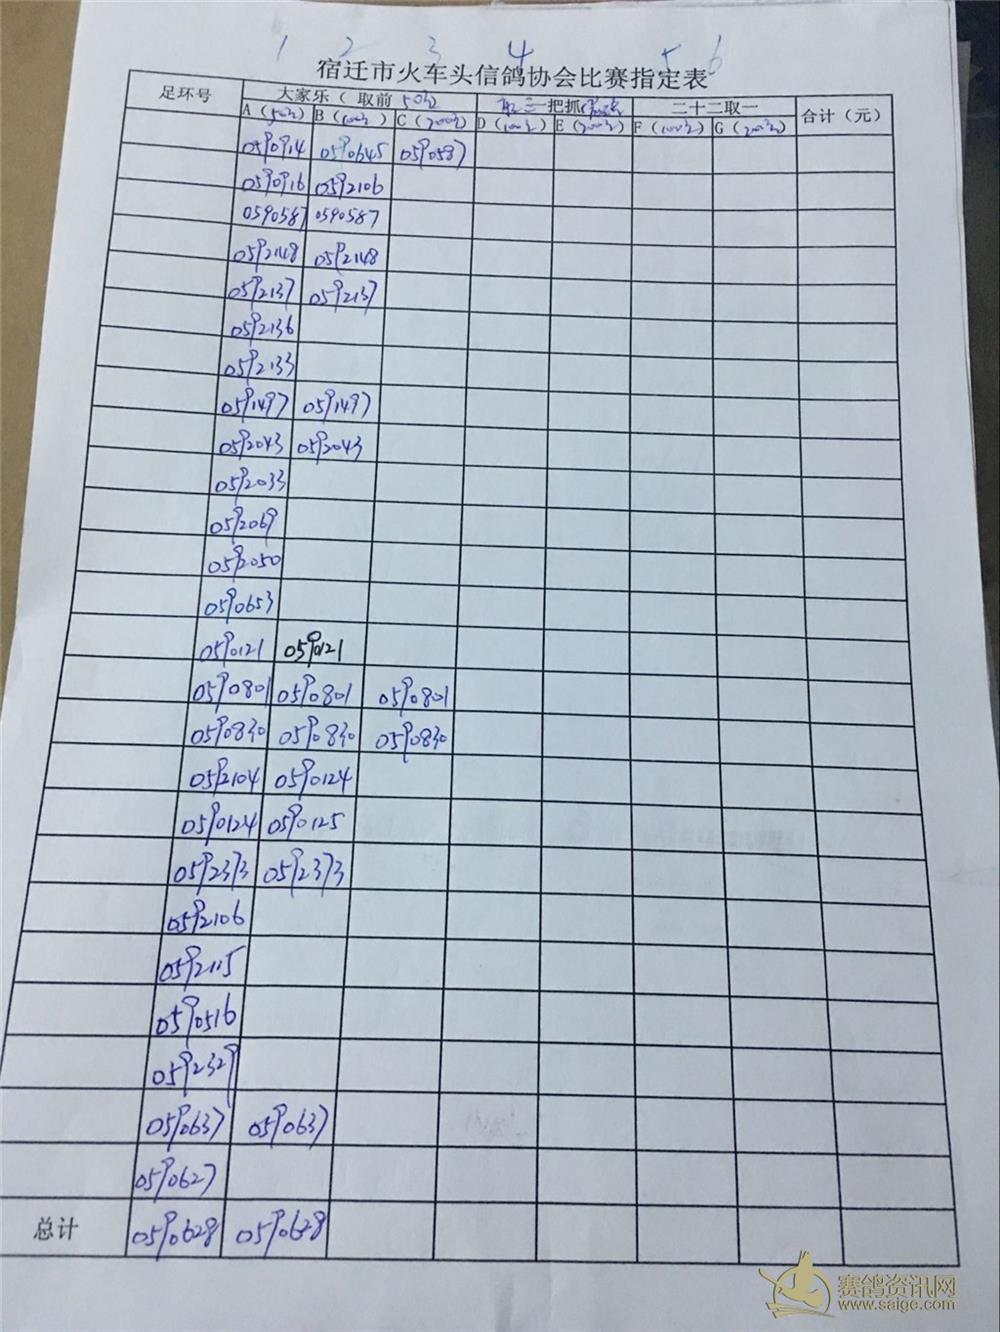 1 2 3 4 5 6
宿迁市火车头信鸽协会比赛指定表
足环号 大家乐（取前50%） 取三一把抓 二十二取一 合计（元）
A（50元） B（100元） C（200元） D（100元） E（200元） F（100元） G（200元）
0590914 0590645 0590587
0590916 0592106
0590587 0590587
0592148 0592148
0592137 0592137
0592136
0592133
0591497 0591497
0592043 0592043
0592033
0592069
0592050
0590653
0590121 0590121
0590801 0590801 0590801
0590830 0590830 0590830
0592104 0590124
0590124 0590125
0592373 0592373
0592106
0592115
0590516
0592329
0590637 0590637
0590627
总计 0590628 0590628
赛鸽资讯网
www.saige.com